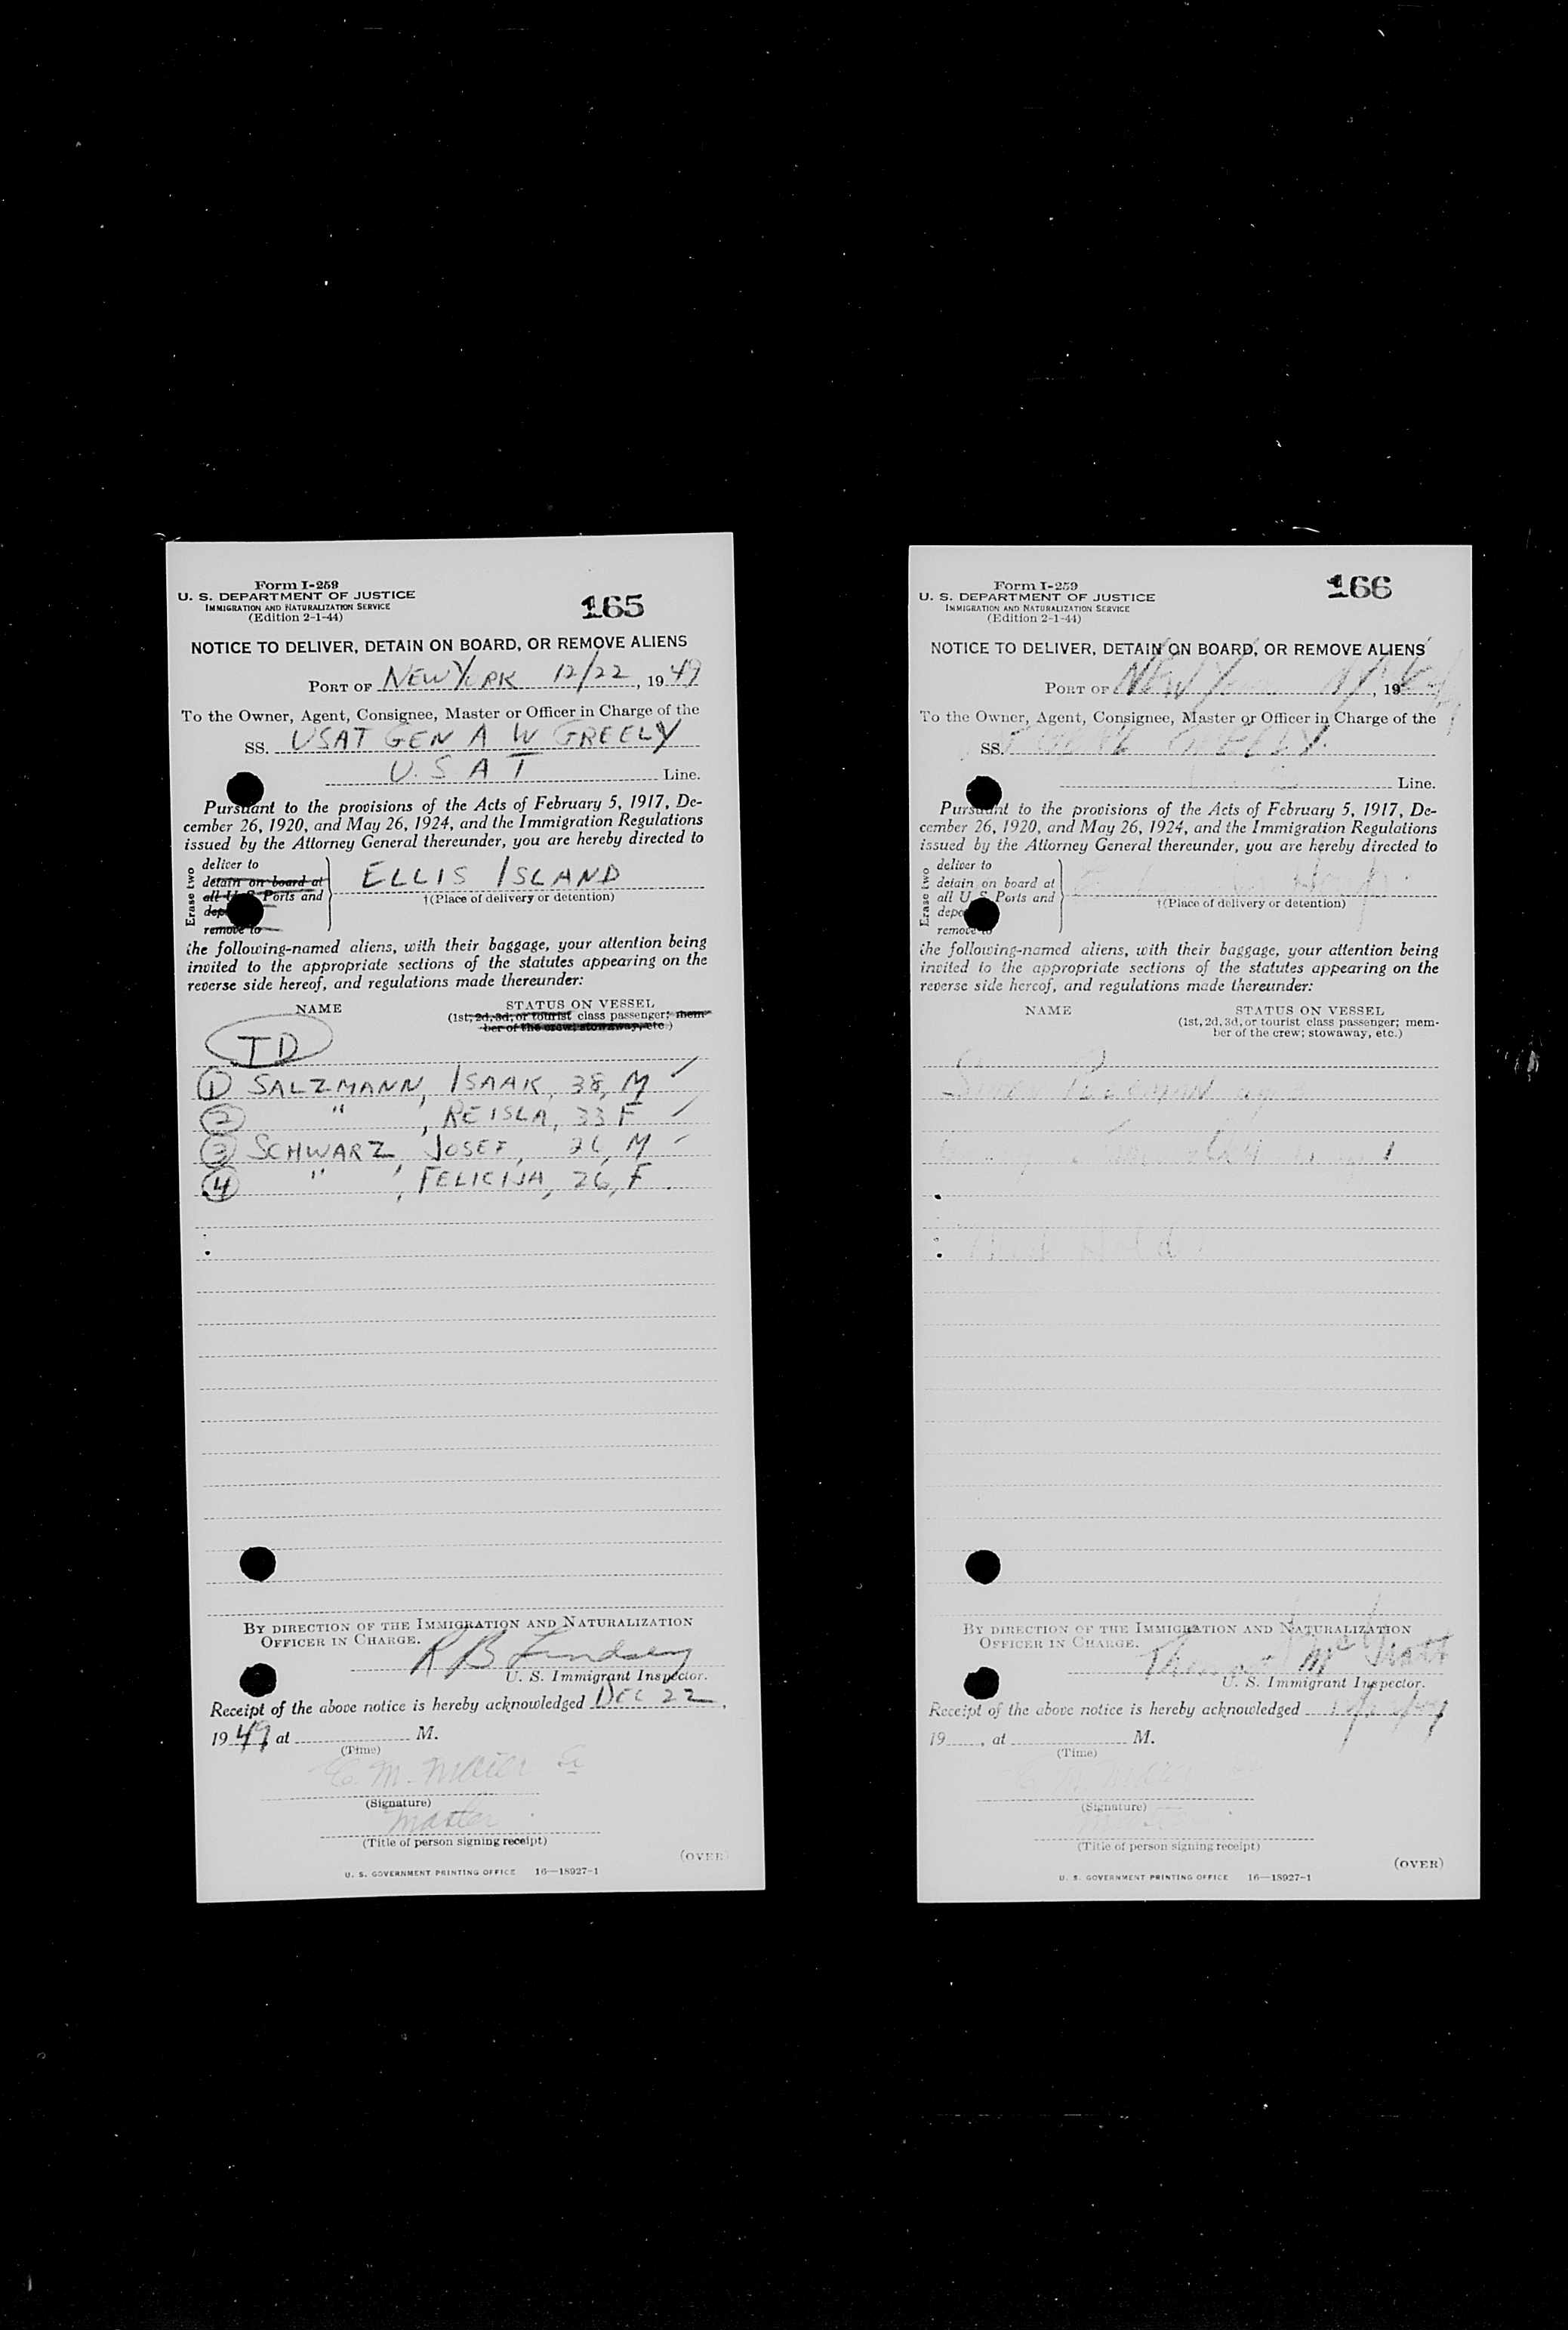 Form I-259
U. S. DEPARTMENT OF JUSTICE
IMMIGRATION AND NATURALIZATION SERVICE
(Edition 2-1-44)
165
NOTICE TO DELIVER, DETAIN ON BOARD, OR REMOVE ALIENS
PORT OF NEW YORK 12/22, 1949
To the Owner, Agent, Consignee, Master or Officer in Charge of the
SS. USAT GEN A W GREELY
U. S. A T Line.
Pursuant to the provisions of the Acts of February 5, 1917, De-
cember 26, 1920, and May 26, 1924, and the Immigration Regulations
issued by the Attorney General thereunder, you are hereby directed to
Erase two
deliver to
detain on board at
all U. S. Ports and
remove to
ELLIS ISLAND
†(Place of delivery or detention)
the following-named aliens, with their baggage, your attention being
invited to the appropriate sections of the statutes appearing on the
reverse side hereof, and regulations made thereunder:
NAME
STATUS ON VESSEL
(1st, 2d, 3d, or tourist class passenger; mem-
ber of the crew; stowaway, etc.)
TD
1 SALZMANN, ISAAK, 38, M ✓
2 " , REISLA, 33 F ✓
3 SCHWARZ, JOSEF, 26, M ✓
4 " , FELICIJA, 26, F.
BY DIRECTION OF THE IMMIGRATION AND NATURALIZATION
OFFICER IN CHARGE.
R B Lindsey
U. S. Immigrant Inspector.
Receipt of the above notice is hereby acknowledged DEC 22,
1949, at M.
(Time)
(Signature)
Master
(Title of person signing receipt)
(OVER)
U. S. GOVERNMENT PRINTING OFFICE 16—18927-1
Form I-259
U. S. DEPARTMENT OF JUSTICE
IMMIGRATION AND NATURALIZATION SERVICE
(Edition 2-1-44)
166
NOTICE TO DELIVER, DETAIN ON BOARD, OR REMOVE ALIENS
PORT OF NEW York , 19
To the Owner, Agent, Consignee, Master or Officer in Charge of the
SS. GREELY
Line.
Pursuant to the provisions of the Acts of February 5, 1917, De-
cember 26, 1920, and May 26, 1924, and the Immigration Regulations
issued by the Attorney General thereunder, you are hereby directed to
Erase two
deliver to
detain on board at
all U. S. Ports and
remove to
†(Place of delivery or detention)
the following-named aliens, with their baggage, your attention being
invited to the appropriate sections of the statutes appearing on the
reverse side hereof, and regulations made thereunder:
NAME
STATUS ON VESSEL
(1st, 2d, 3d, or tourist class passenger; mem-
ber of the crew; stowaway, etc.)
Hold
BY DIRECTION OF THE IMMIGRATION AND NATURALIZATION
OFFICER IN CHARGE.
U. S. Immigrant Inspector.
Receipt of the above notice is hereby acknowledged
19 , at M.
(Time)
(Signature)
(Title of person signing receipt)
(OVER)
U. S. GOVERNMENT PRINTING OFFICE 16—18927-1